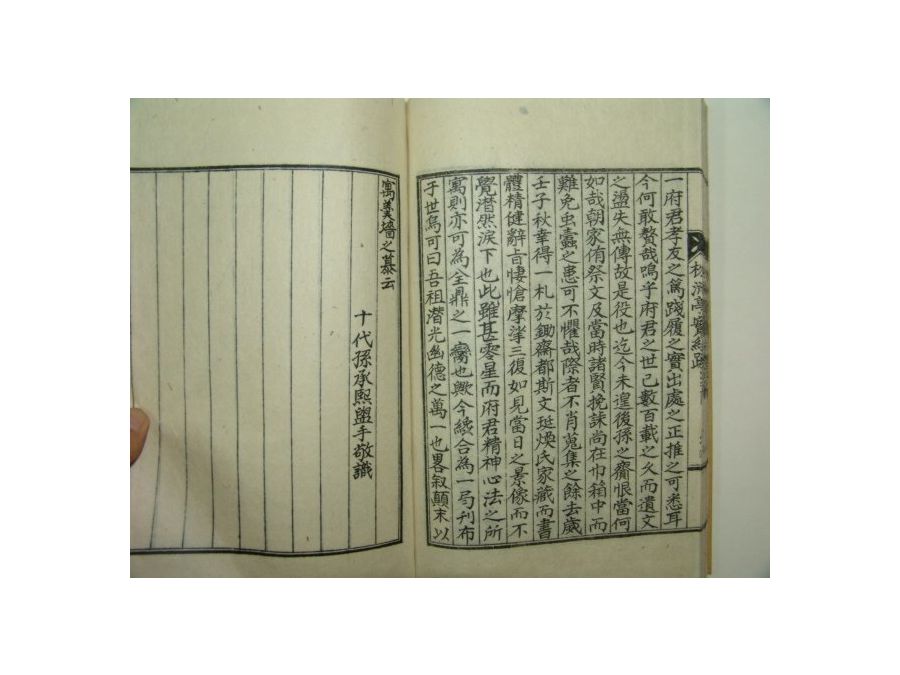 一府君孝友之篤踐履之實出處之正推之可悉耳
今何敢贅哉嗚乎府君之世已數百載之久而遺文
之盪失無傳故是役也迄今未遑後孫之齎恨當何
如哉朝家侑祭文及當時諸賢挽誄尚在巾箱中而
難免虫蠹之患可不懼哉際者不肖蒐集之餘去歲
壬子秋幸得一札於鋤齋都斯文珽煥氏家藏而書
體精健辭旨悽愴摩挲三復如見當日之景像而不
覺潸然淚下也此雖甚零星而府君精神心法之所
寓則亦可為全鼎之一臠也歟今綴合為一局刊布
于世烏可曰吾祖潛光幽德之萬一也畧叙顛末以
寓羹墻之慕云
十代孫承熙盥手敬識
亭實紀跋